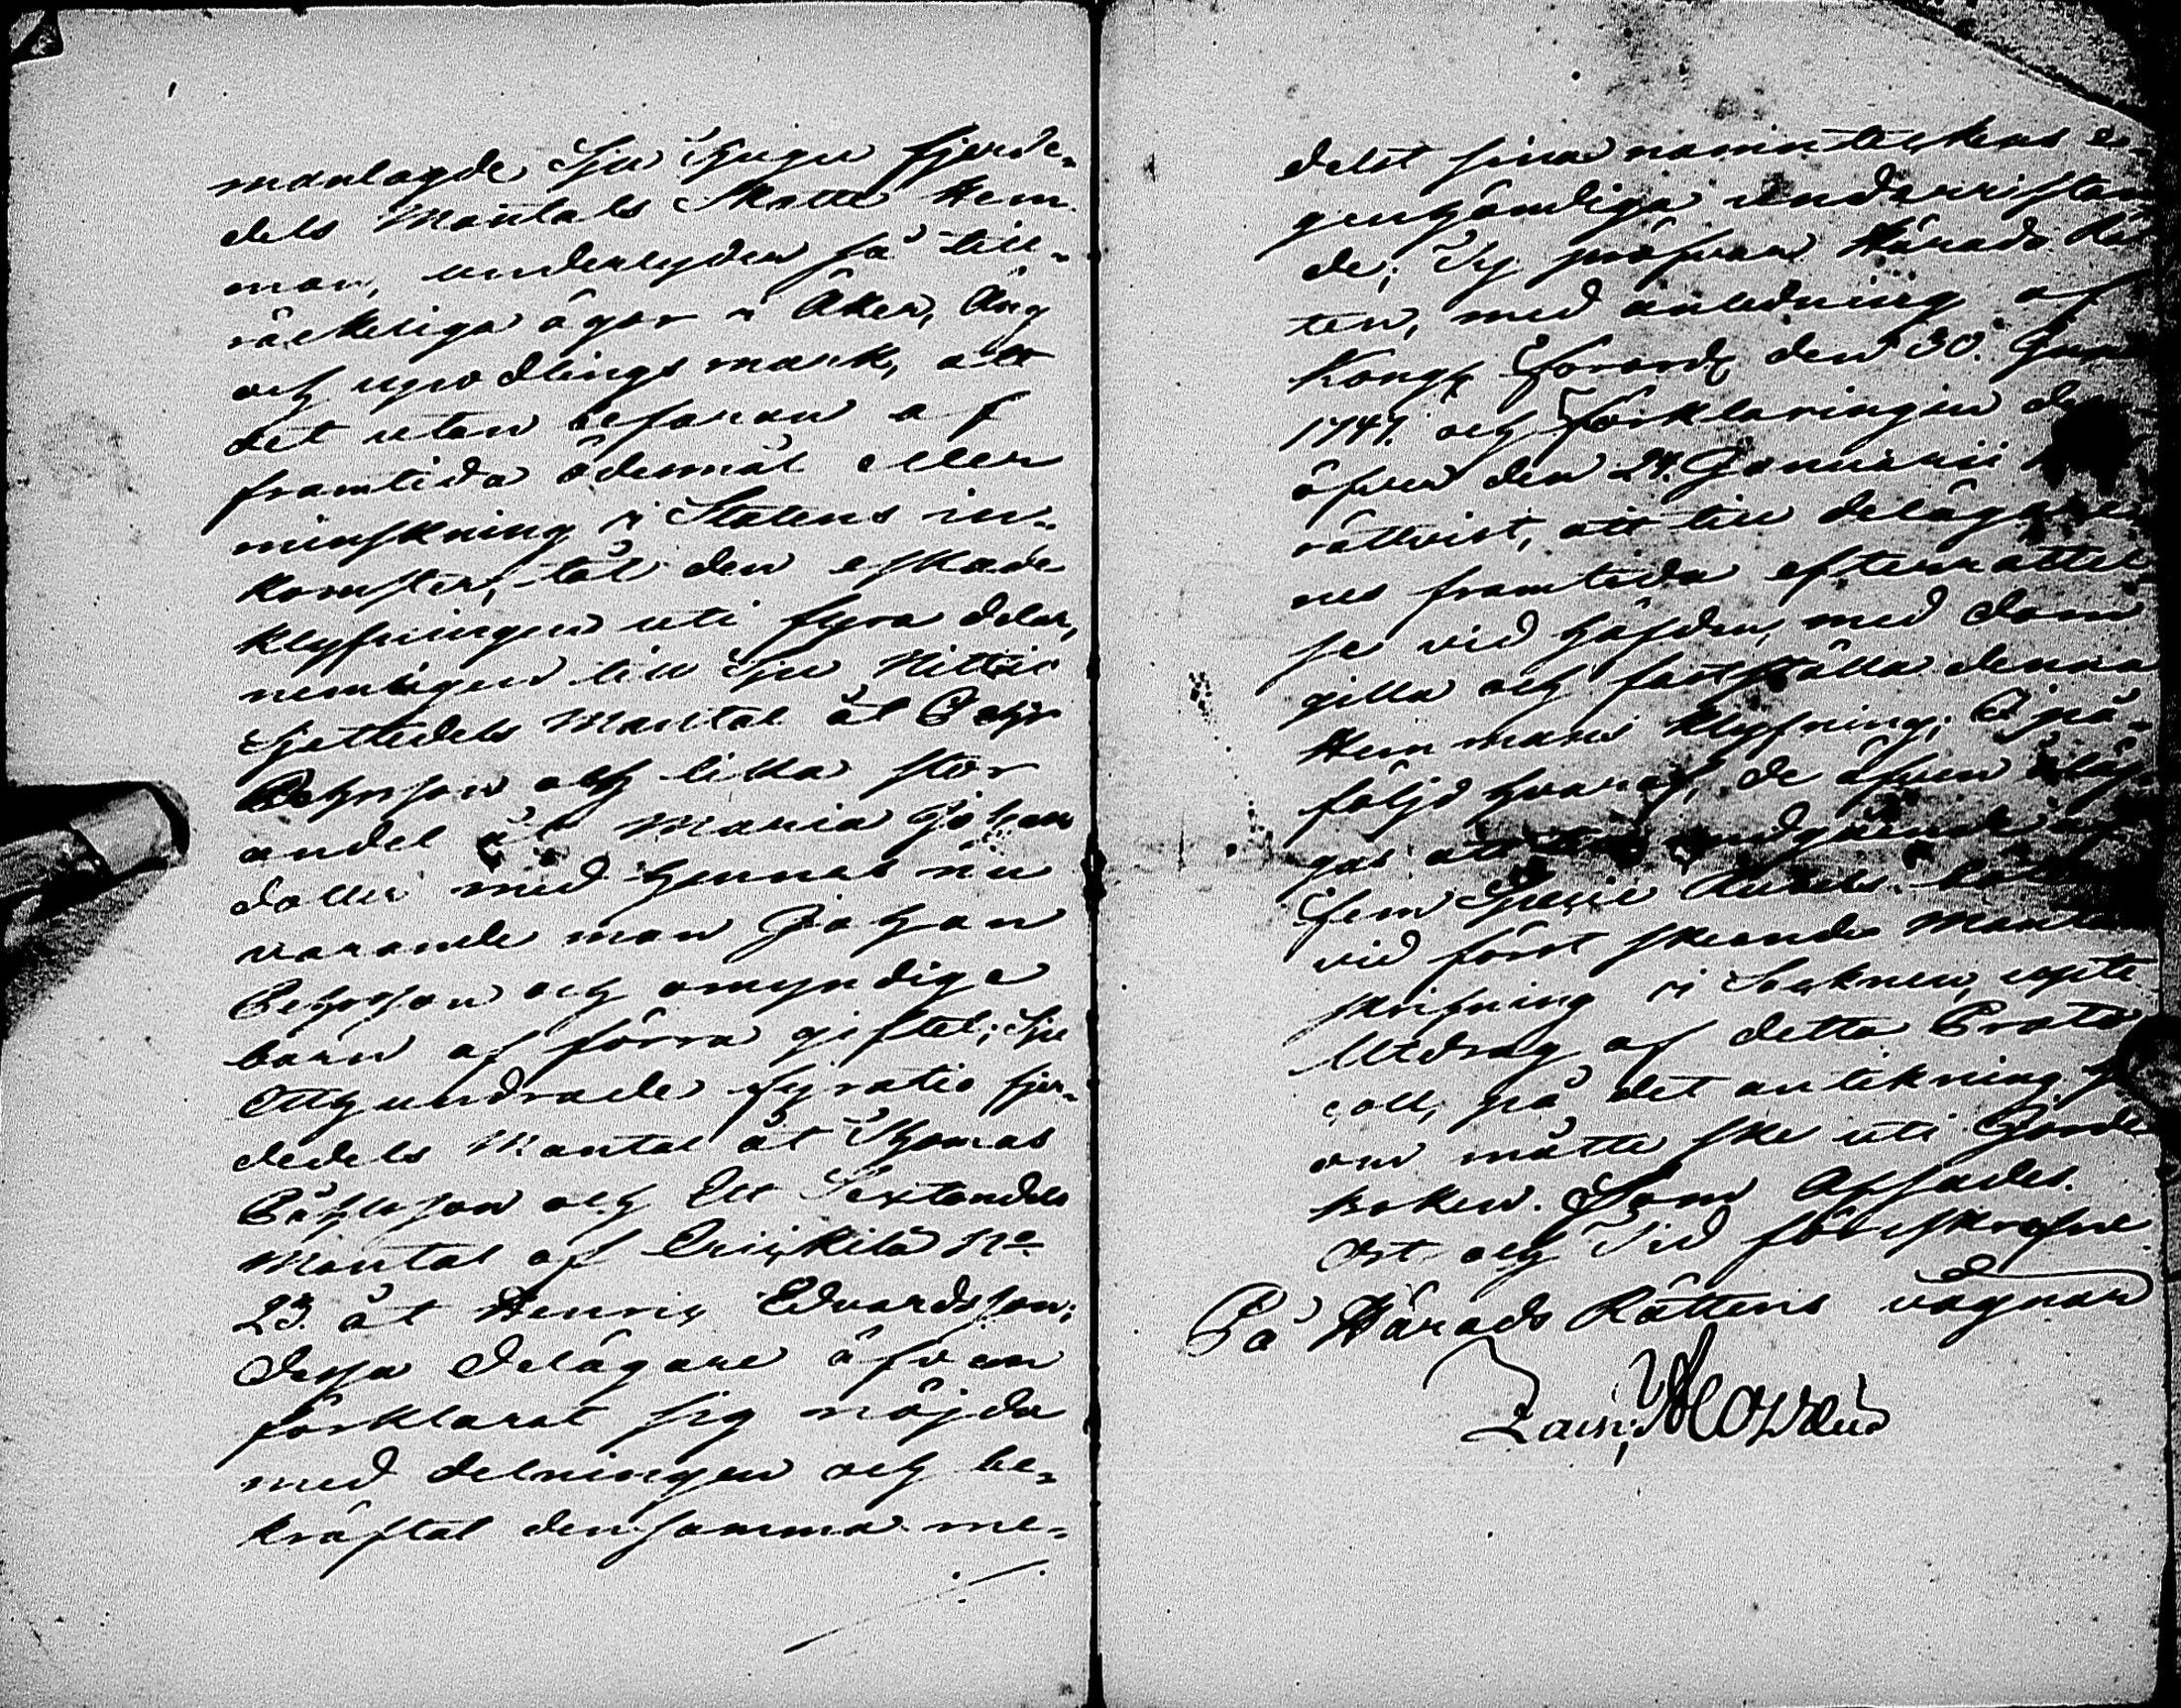 manlagde Sju Tjugu fjerde-
dels Mantals Skatte Hem-
man, underlyder så till-
räckeliga ägor i Åker, Äng
och upodlings mark, att
det utan befaran af
framtida ödesmål eller
minskning i Statens in-
komster, tål den eskade
klyfningen uti fyra delar,
nemligen till Sju Nittio
Sjettedels Mantal åt Pehr
Pehrsson och lika stor
andel åt Maria Johans
dotter med hennes nu
varande man Johan
Pehrsson och omyndige
barn af förra giftet; Sju
Etthundrade fyratio fjer-
dedels Mantal åt Thomas
Påhlsson och Ett Sextondels
Mantal af Erichkilä No
23. åt Henric Edvardsson;
Dessa Delägare äfven
förklarat sig nöjda
med delningen och be-
kräftat densamma me-
delst sina namnteckens e-
genhändiga underristan
de; Ty pröfvar Härads Rät
ten, med anledning af
Kongl. Förord. den 30. Juni
1747. och Förklaringen der
öfver den 24. Januarii
rättvist, att till delägare
nes framtida efterrättel-
se vid häfden, med dom
gilla och fastställa denna
Hemmans klyfning; I på-
följd hvaraf, de äfven åläg-
gas att
Fem
vid först skeende Mantals
skrifning i Socknen,
Utdrag af detta Proto-
coll, på det antekning
om måtte ske uti Jorde
boken. Som Afsades.
Ort och Tid förutskrefne.
På Härads Rättens vägnar